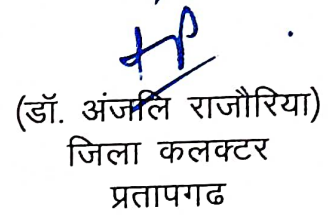 (डॉ. अंजलि राजौरिया)
जिला कलक्टर
प्रतापगढ